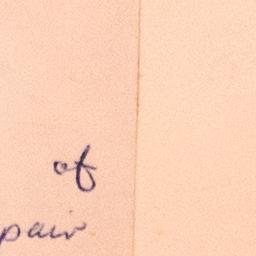 of
pair